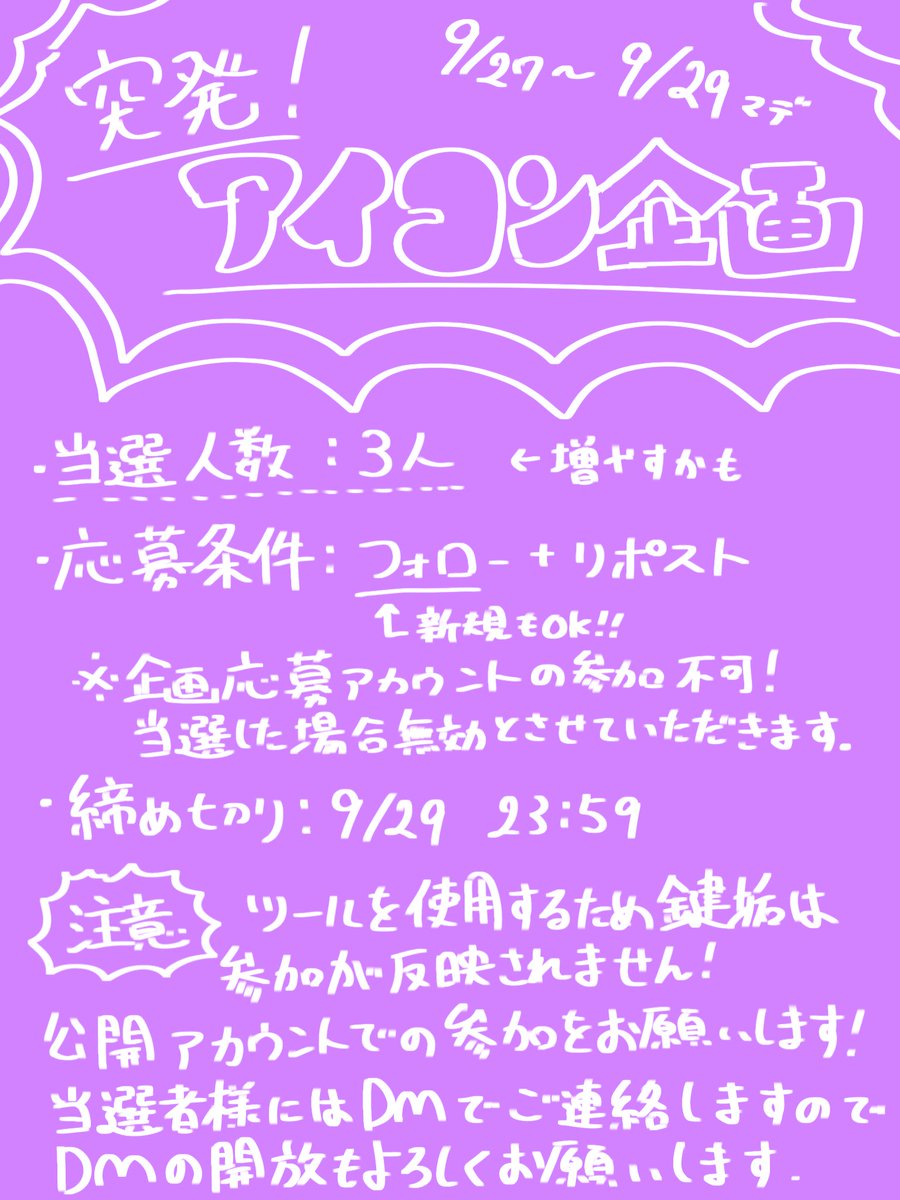 突発!
9/27〜9/29マデ
アイコン企画
・当選人数:3人 ←増やすかも
・応募条件:フォロー+リポスト
↑新規もOK!!
※企画応募アカウントの参加不可!
当選した場合無効とさせていただきます.
・締め切り:9/29 23:59
注意 ツールを使用するため鍵垢は
参加が反映されません!
公開アカウントでの参加をお願いします!
当選者様にはDmでご連絡しますので
Dmの開放もよろしくお願いします.